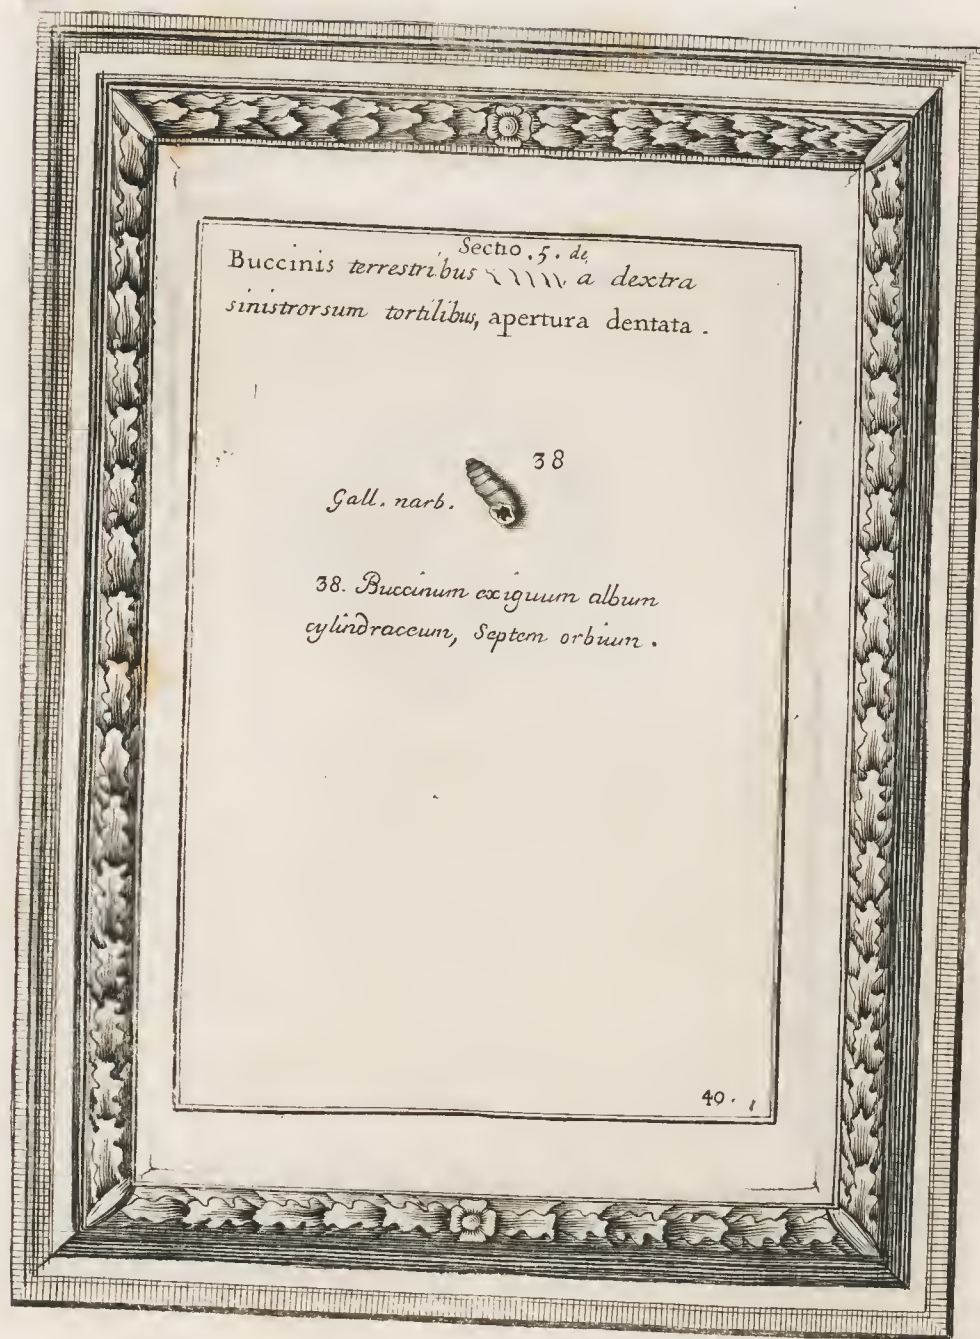 Sectio . 5 . de
Buccinis terrestribus \\\\\ a dextra
sinistrorsum tortilibus, apertura dentata .
38
Gall. narb.
38. Buccinum exiguum album
cylindraceum, Septem orbium .
40.